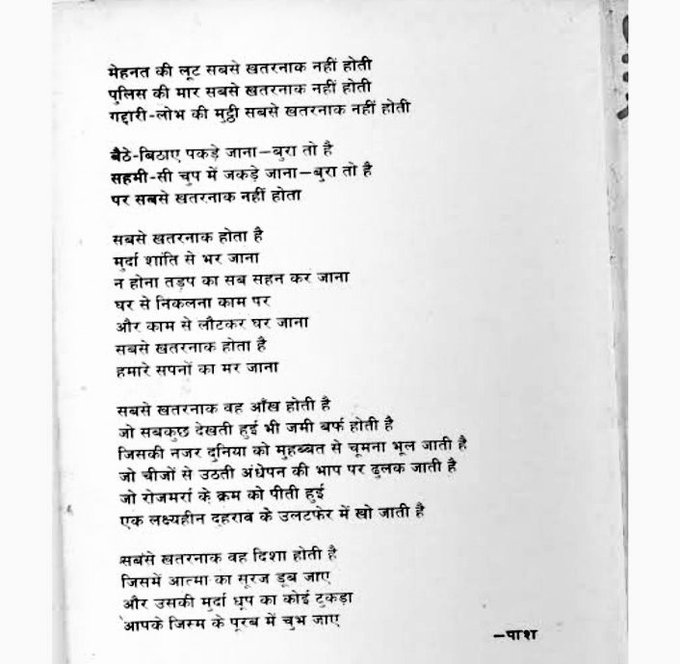 मेहनत की लूट सबसे खतरनाक नहीं होती
पुलिस की मार सबसे खतरनाक नहीं होती
गद्दारी-लोभ की मुट्ठी सबसे खतरनाक नहीं होती
बैठे-बिठाए पकड़े जाना—बुरा तो है
सहमी-सी चुप में जकड़े जाना—बुरा तो है
पर सबसे खतरनाक नहीं होता
सबसे खतरनाक होता है
मुर्दा शांति से भर जाना
न होना तड़प का सब सहन कर जाना
घर से निकलना काम पर
और काम से लौटकर घर जाना
सबसे खतरनाक होता है
हमारे सपनों का मर जाना
सबसे खतरनाक वह आँख होती है
जो सबकुछ देखती हुई भी जमी बर्फ होती है
जिसकी नजर दुनिया को मुहब्बत से चूमना भूल जाती है
जो चीजों से उठती अंधेपन की भाप पर ढुलक जाती है
जो रोजमर्रा के क्रम को पीती हुई
एक लक्ष्यहीन दहराव के उलटफेर में खो जाती है
सबसे खतरनाक वह दिशा होती है
जिसमें आत्मा का सूरज डूब जाए
और उसकी मुर्दा धूप का कोई टुकड़ा
आपके जिस्म के पूरब में चुभ जाए
—पाश